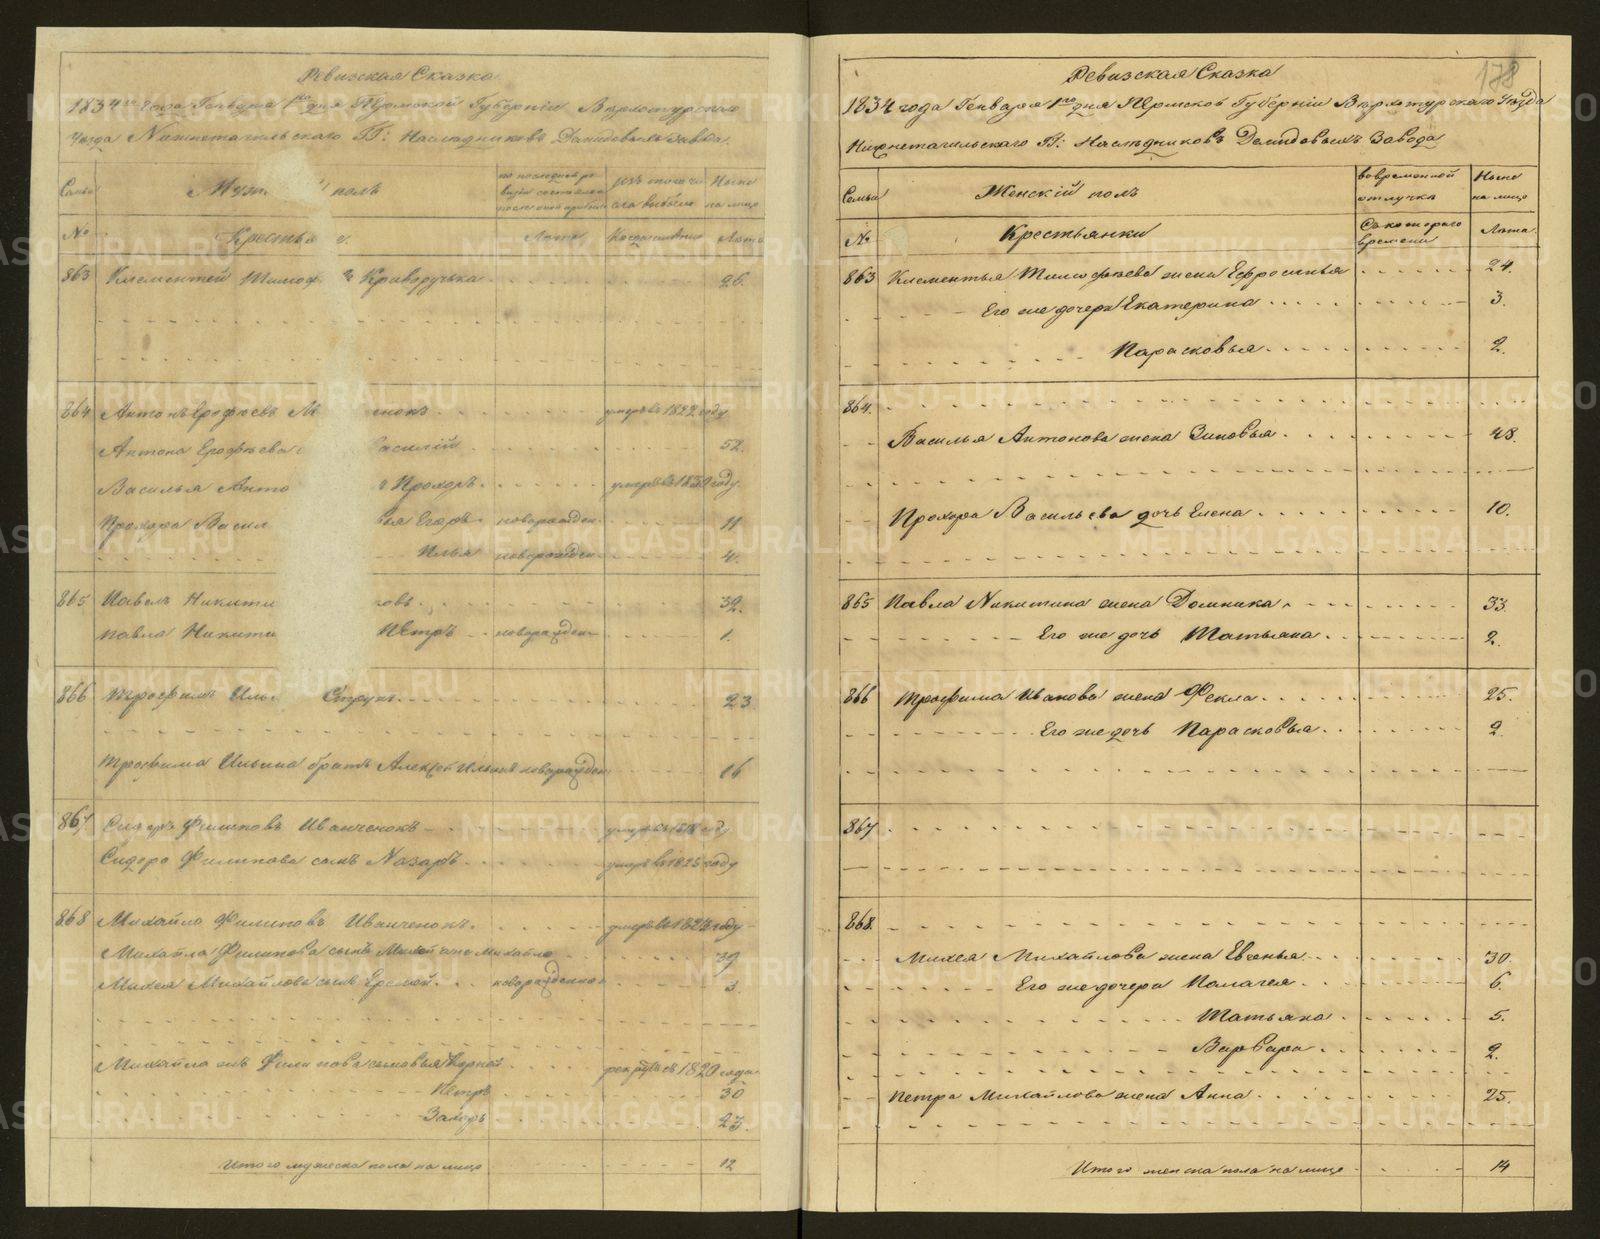 Ревизская Сказка
1834го года Генваря 1го дня Пермской Губернии Верхотурского
Уезда Нижнетагильского ГГ: Наследниковъ Демидовыхъ завода
Семьи Муж полъ по последней ревизии состояло изъ того числа выбыло Ныне на лицо
№ Крестья Лета Когда именно Лета
863 Клементей Тимоф Криворучька 26.
864 Антонъ Ерофеевъ енокъ умеръ въ 1822 году
Антона Ерофеева асилій 52.
Василья Анто Прохоръ умеръ въ 1832 году.
Прохора Васил Егоръ новорожден. 11
Илья новорожден 4.
865 Павелъ Никити овъ. 32.
Павла Никити Петръ новорожден 1.
866 Трофимъ Иль Струкъ 23
Трофима Ильина братъ Алексей Ильинъ новорожден 16
867 Сидоръ Филиповъ Иванченокъ умеръ въ году
Сидора Филипова сынъ Назаръ умеръ въ 1825 году
868 Михайло Филиповъ Иванченокъ. умеръ въ 1824 году
Михайла Филипова сынъ Михей Михайло 39
Михея Михайлова сынъ Еремей новорожденной 3.
Михайла Филипова сыновья Корней рекрутъ съ 1820 года
Петръ 30
Захаръ 27.
Итого мужеска пола на лицо 12
178
Ревизская Сказка
1834 года Генваря 1го дня Пермской Губерніи Верхотурскаго Уезда
Нижнетагильскаго ГГ: Наследниковъ Демидовыхъ Завода
Семьи Женскій полъ во временной отлучке Ныне на лицо
№ Крестьянки Съ которого времени Лета
863 Клементья Тимофеева жена Ефросинья 24.
Его же дочери Екатерина 3.
Парасковья 2.
864.
Василья Антонова жена Зиновья 48.
Прохора Васильева дочь Елена 10.
865 Павла Никитина жена Домника 33.
Его же дочь Татьяна 2.
866 Трофима Иванова жена Фекла 25.
Его же дочь Парасковья 2.
867
868.
Михея Михайлова жена Евгенья 30.
Его же дочери Палагея 6.
Татьяна 5.
Варвара 2.
Петра Михайлова жена Анна 25.
Итого женска пола на лицо 14
METRIKI.GASO-URAL.RU